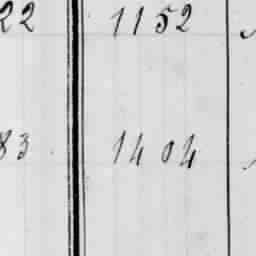 22 1152
83 1404